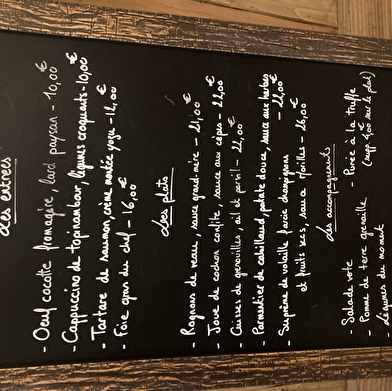 Les entrées
- Oeuf cocotte fromagère, lard paysan - 10,00€
- Cappuccino de topinambour, légumes croquants - 10,00€
- Tartare de saumon, crème montée yuzu - 12,00€
- Foie gras du chef - 16,00€
Les plats
- Rognons de veau, sauce grand-mère - 21,00€
- Joue de cochon confite, sauce aux cèpes - 22,00€
- Cuisses de grenouilles, ail et persil - 22,00€
- Parmentier de cabillaud, patate douce, sauce aux herbes - 22,00€
- Suprême de volaille farcie champignons
et fruits secs, sauce morilles - 26,00€
Les accompagnements
- Salade verte
- Pomme de terre grenaille
- Légumes du moment
- Purée à la truffe
(supp 3,00€ sur le plat)